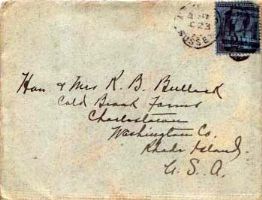 SUSSE
Hon & Mrs K. B. Bullard
Cold Brook Farms
Charlestown
Washington Co.
Rhode Island.
U. S. A.